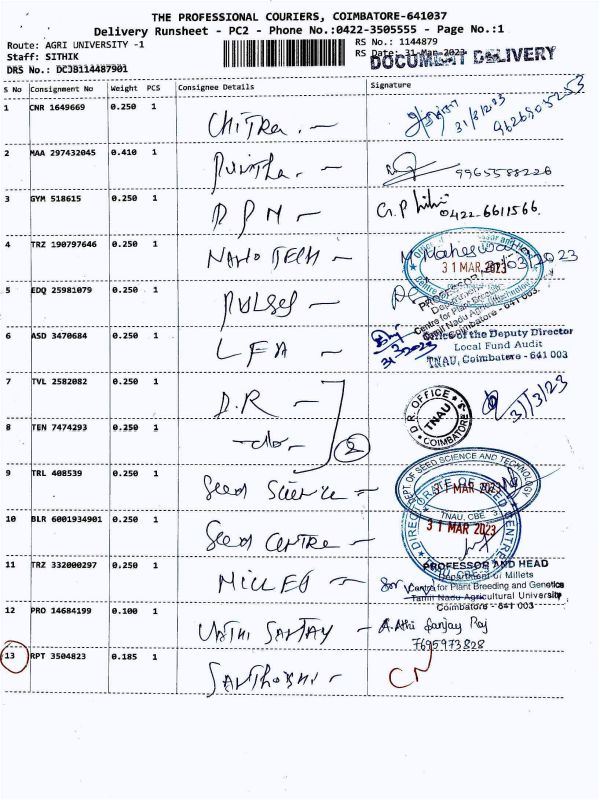 THE PROFESSIONAL COURIERS, COIMBATORE-641037
Delivery Runsheet - PC2 - Phone No.:0422-3505555 - Page No.:1
Route: AGRI UNIVERSITY -1
RS No.: 1144879
Staff: SITHIK
RS Date: 31-Mar-2023
DOCUMENT DELIVERY
DRS No.: DCJB114487901
S No Consignment No Weight PCS Consignee Details Signature
1 CNR 1649669 0.250 1 Chitra. 31/3/23 9626505253
2 MAA 297432045 0.410 1 9965588226
3 GYM 518615 0.250 1 D P M G.P 0422-6611566.
4 TRZ 190797646 0.250 1 NANO TECH M. Maheswari 31 MAR 2023
5 EDQ 25981079 0.250 1 PULSES
PROFESSOR
Department of
Centre for Plant Breeding
Tamil Nadu Agricultural
Coimbatore - 641 003.
6 ASD 3470684 0.250 1 LFA 31/3/2023
Office of the Deputy Director
Local Fund Audit
TNAU, Coimbatore - 641 003
7 TVL 2582082 0.250 1 D.R 31/3/23
D.R. OFFICE TNAU COIMBATORE-3
8 TEN 7474293 0.250 1 -do- 2
9 TRL 408539 0.250 1 Seed Science
DEPT. OF SEED SCIENCE AND TECHNOLOGY
31 MAR 2023
TNAU, CBE
10 BLR 6001934901 0.250 1 Seed Centre
DIRECTORATE OF SEED CENTRE
31 MAR 2023
TNAU, CBE
11 TRZ 332000297 0.250 1 MILLET
PROFESSOR AND HEAD
Department of Millets
Centre for Plant Breeding and Genetics
Tamil Nadu Agricultural University
Coimbatore - 641 003
12 PRO 14684199 0.100 1 SANJAY A. Athi Sanjay Raj
7695973828
13 RPT 3504823 0.185 1 SANTHOSHI CN